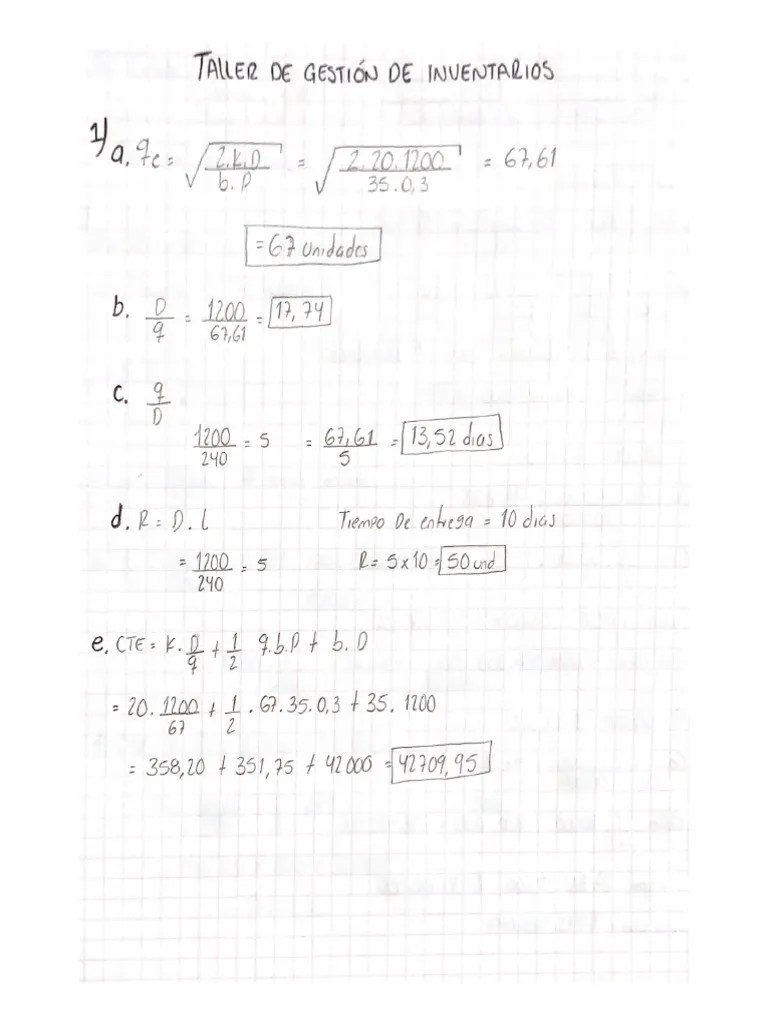 TALLER DE GESTIÓN DE INVENTARIOS
1) a. qe = √(2.K.D / b.P) = √(2.20.1200 / 35.0,3) = 67,61
= 67 Unidades
b. D/q = 1200/67,61 = 17,74
c. q/D
1200/240 = 5 = 67,61/5 = 13,52 dias
d. R = D.L Tiempo De entrega = 10 dias
= 1200/240 = 5 R = 5x10 = 50 und
e. CTE = K.D/q + 1/2 q.b.P + b.D
= 20.1200/67 + 1/2 .67.35.0,3 + 35.1200
= 358,20 + 351,75 + 42000 = 42709,95